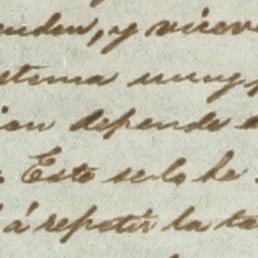 enden, y vicev
stema muy
ion depende
Este solo he
á repetir la ta